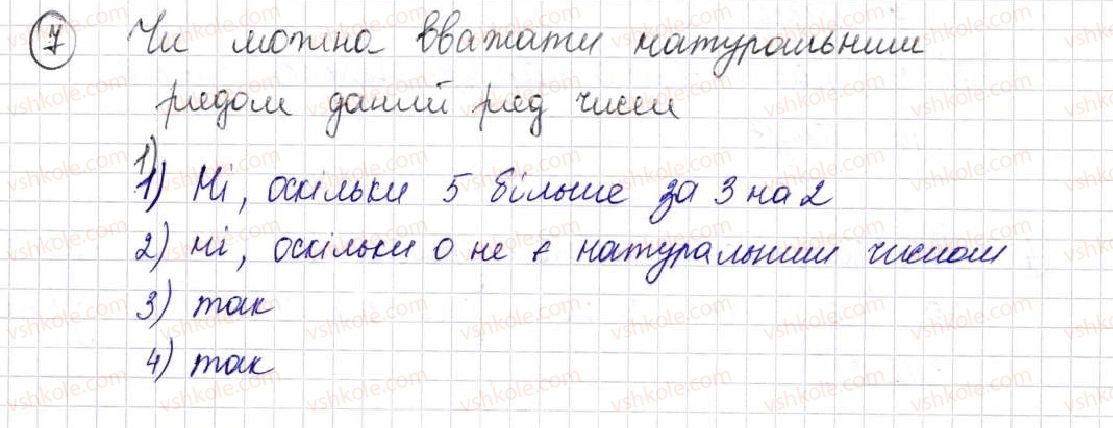 7 Чи можна вважати натуральним
рядом даний ряд чисел
1)
1) Ні, оскільки 5 більше за 3 на 2
2) ні, оскільки 0 не є натуральним числом
3) так
4) так